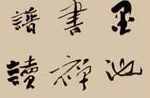 墨池
書禪
譜讀